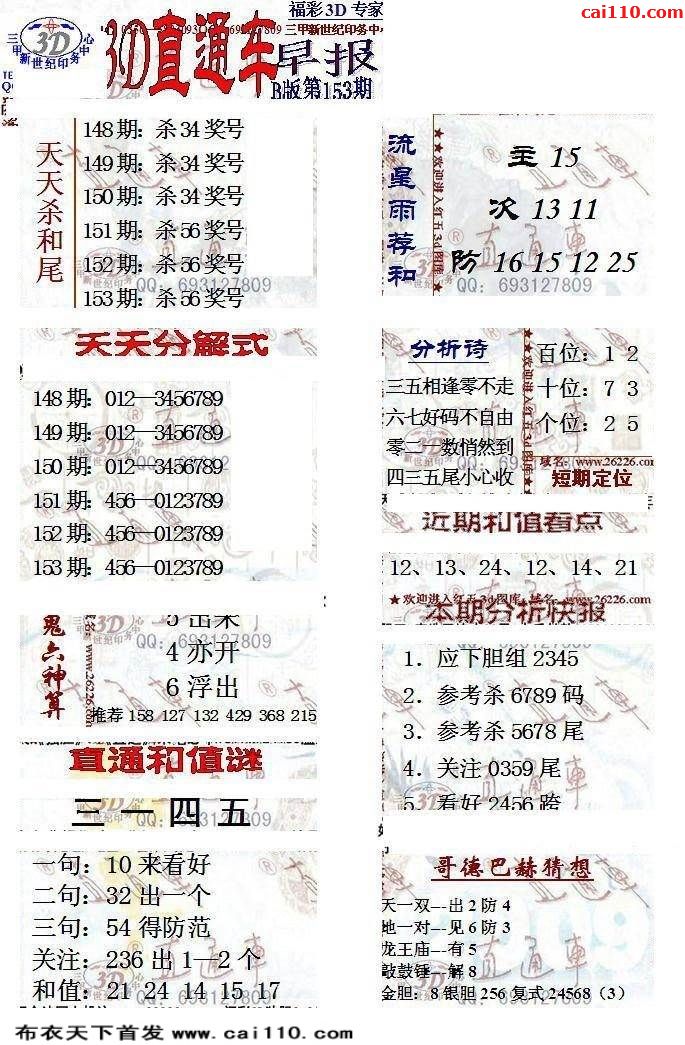 福彩3D 专家
cai110.com
3D
三甲新世纪印务中心
3D直通车
早报
B版第153期
天天杀和尾
148 期: 杀 34 奖号
149 期: 杀 34 奖号
150 期: 杀 34 奖号
151 期: 杀 56 奖号
152 期: 杀 56 奖号
153 期: 杀 56 奖号
QQ: 693127809
流星雨荐和
★★欢迎进入红五3d图库★
主 15
次 13 11
防 16 15 12 25
直通車
QQ: 693127809
天天分解式
148 期: 012—3456789
149 期: 012—3456789
150 期: 012—3456789
151 期: 456—0123789
152 期: 456—0123789
153 期: 456—0123789
分析诗
三五相逢零不走
六七好码不自由
零二一数悄然到
四三五尾小心收
百位: 1 2
十位: 7 3
个位: 2 5
域名: www.26226.com
短期定位
近期和值看点
12、13、24、12、14、21
★欢迎进入红五3d图库 域名: www.26226.com
本期分析快报
1. 应下胆组 2345
2. 参考杀 6789 码
3. 参考杀 5678 尾
4. 关注 0359 尾
5. 看好 2456 跨
鬼六神算
www.26226.com
3 出来
4 亦开
6 浮出
QQ: 693127809
推荐 158 127 132 429 368 215
直通和值谜
三 一 四 五
QQ: 693127809
一句: 10 来看好
二句: 32 出一个
三句: 54 得防范
关注: 236 出 1—2 个
和值: 21 24 14 15 17
哥德巴赫猜想
天一双---出 2 防 4
地一对---见 6 防 3
龙王庙---有 5
敲鼓锤---解 8
金胆: 8 银胆 256 复式 24568（3）
布衣天下首发 www.cai110.com